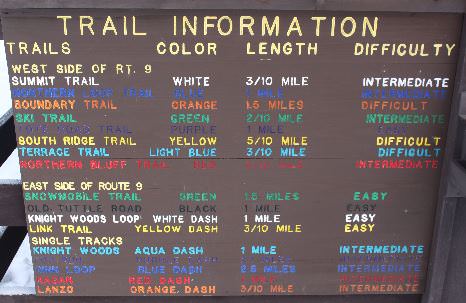 TRAIL INFORMATION
TRAILS COLOR LENGTH DIFFICULTY
WEST SIDE OF RT. 9
SUMMIT TRAIL WHITE 3/10 MILE INTERMEDIATE
NORTHERN LOOP TRAIL BLUE 1 MILE INTERMEDIATE
BOUNDARY TRAIL ORANGE 1.5 MILES DIFFICULT
SKI TRAIL GREEN 2/10 MILE INTERMEDIATE
TRAIL PURPLE 1 MILE EASY
SOUTH RIDGE TRAIL YELLOW 5/10 MILE DIFFICULT
TERRACE TRAIL LIGHT BLUE 3/10 MILE DIFFICULT
NORTHERN BLUFF TRAIL RED MILE INTERMEDIATE
EAST SIDE OF ROUTE 9
SNOWMOBILE TRAIL GREEN 1.5 MILES EASY
OLD TUTTLE ROAD BLACK 1 MILE EASY
KNIGHT WOODS LOOP WHITE DASH 1 MILE EASY
LINK TRAIL YELLOW DASH 3/10 MILE EASY
SINGLE TRACKS
KNIGHT WOODS AQUA DASH 1 MILE INTERMEDIATE
DASH
LOOP BLUE DASH 2.6 MILES INTERMEDIATE
RED DASH INTERMEDIATE
LANZO ORANGE DASH 3/10 MILE INTERMEDIATE